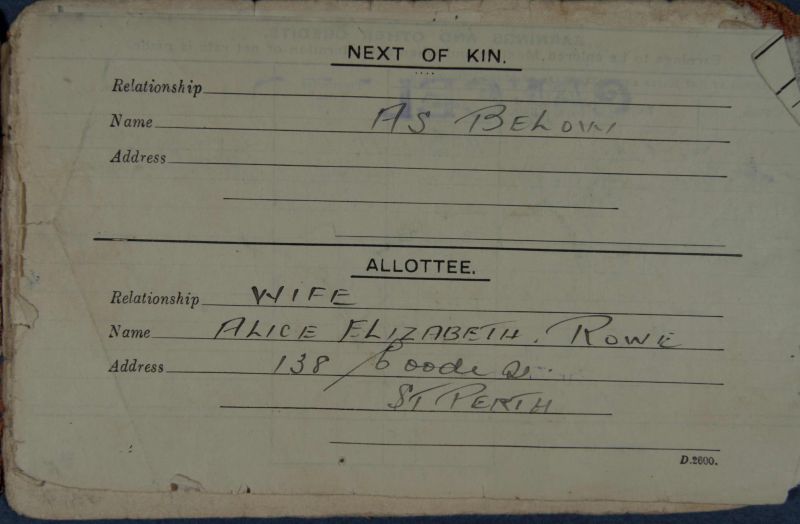 NEXT OF KIN.
Relationship
Name AS BELOW
Address
ALLOTTEE.
Relationship WIFE
Name ALICE ELIZABETH. ROWE
Address 138 Coode St.
ST PERTH
D.2600.